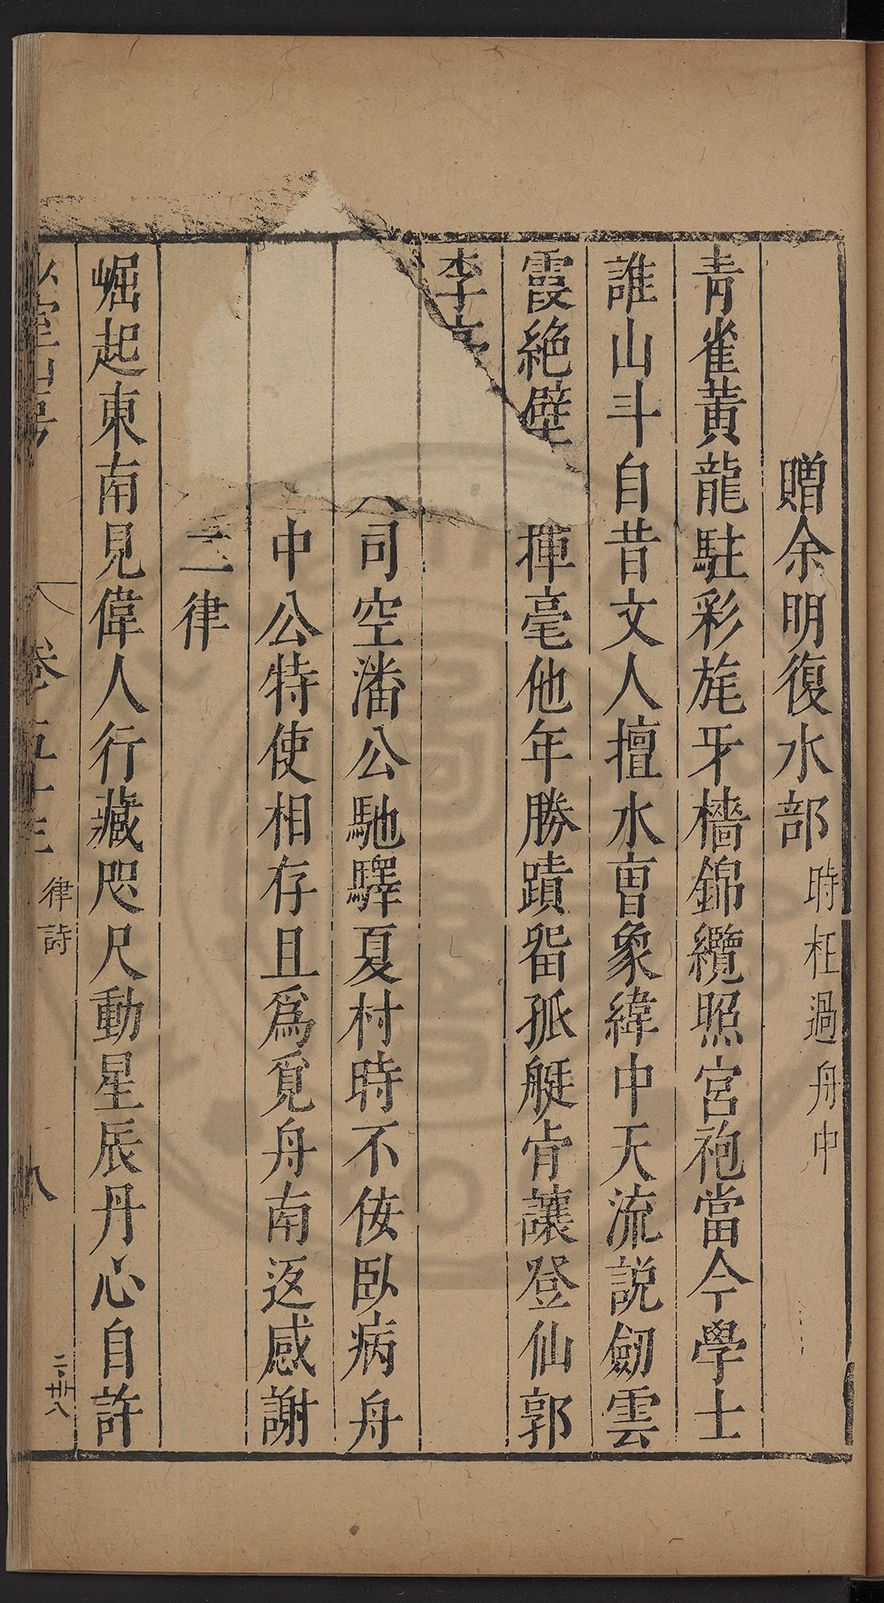 贈余明復水部時枉過舟中
青雀黃龍駐彩旄牙檣錦纜照宮袍當今學士
誰山斗自昔文人擅水曹象緯中天流説劒雲
霞絶壁揮毫他年勝蹟畱孤艇肯讓登仙郭
李
司空潘公馳驛夏村時不佞臥病舟
中公特使相存且爲覓舟南返感謝
二律
崛起東南見偉人行藏咫尺動星辰丹心自許
卷五十三 律詩 八